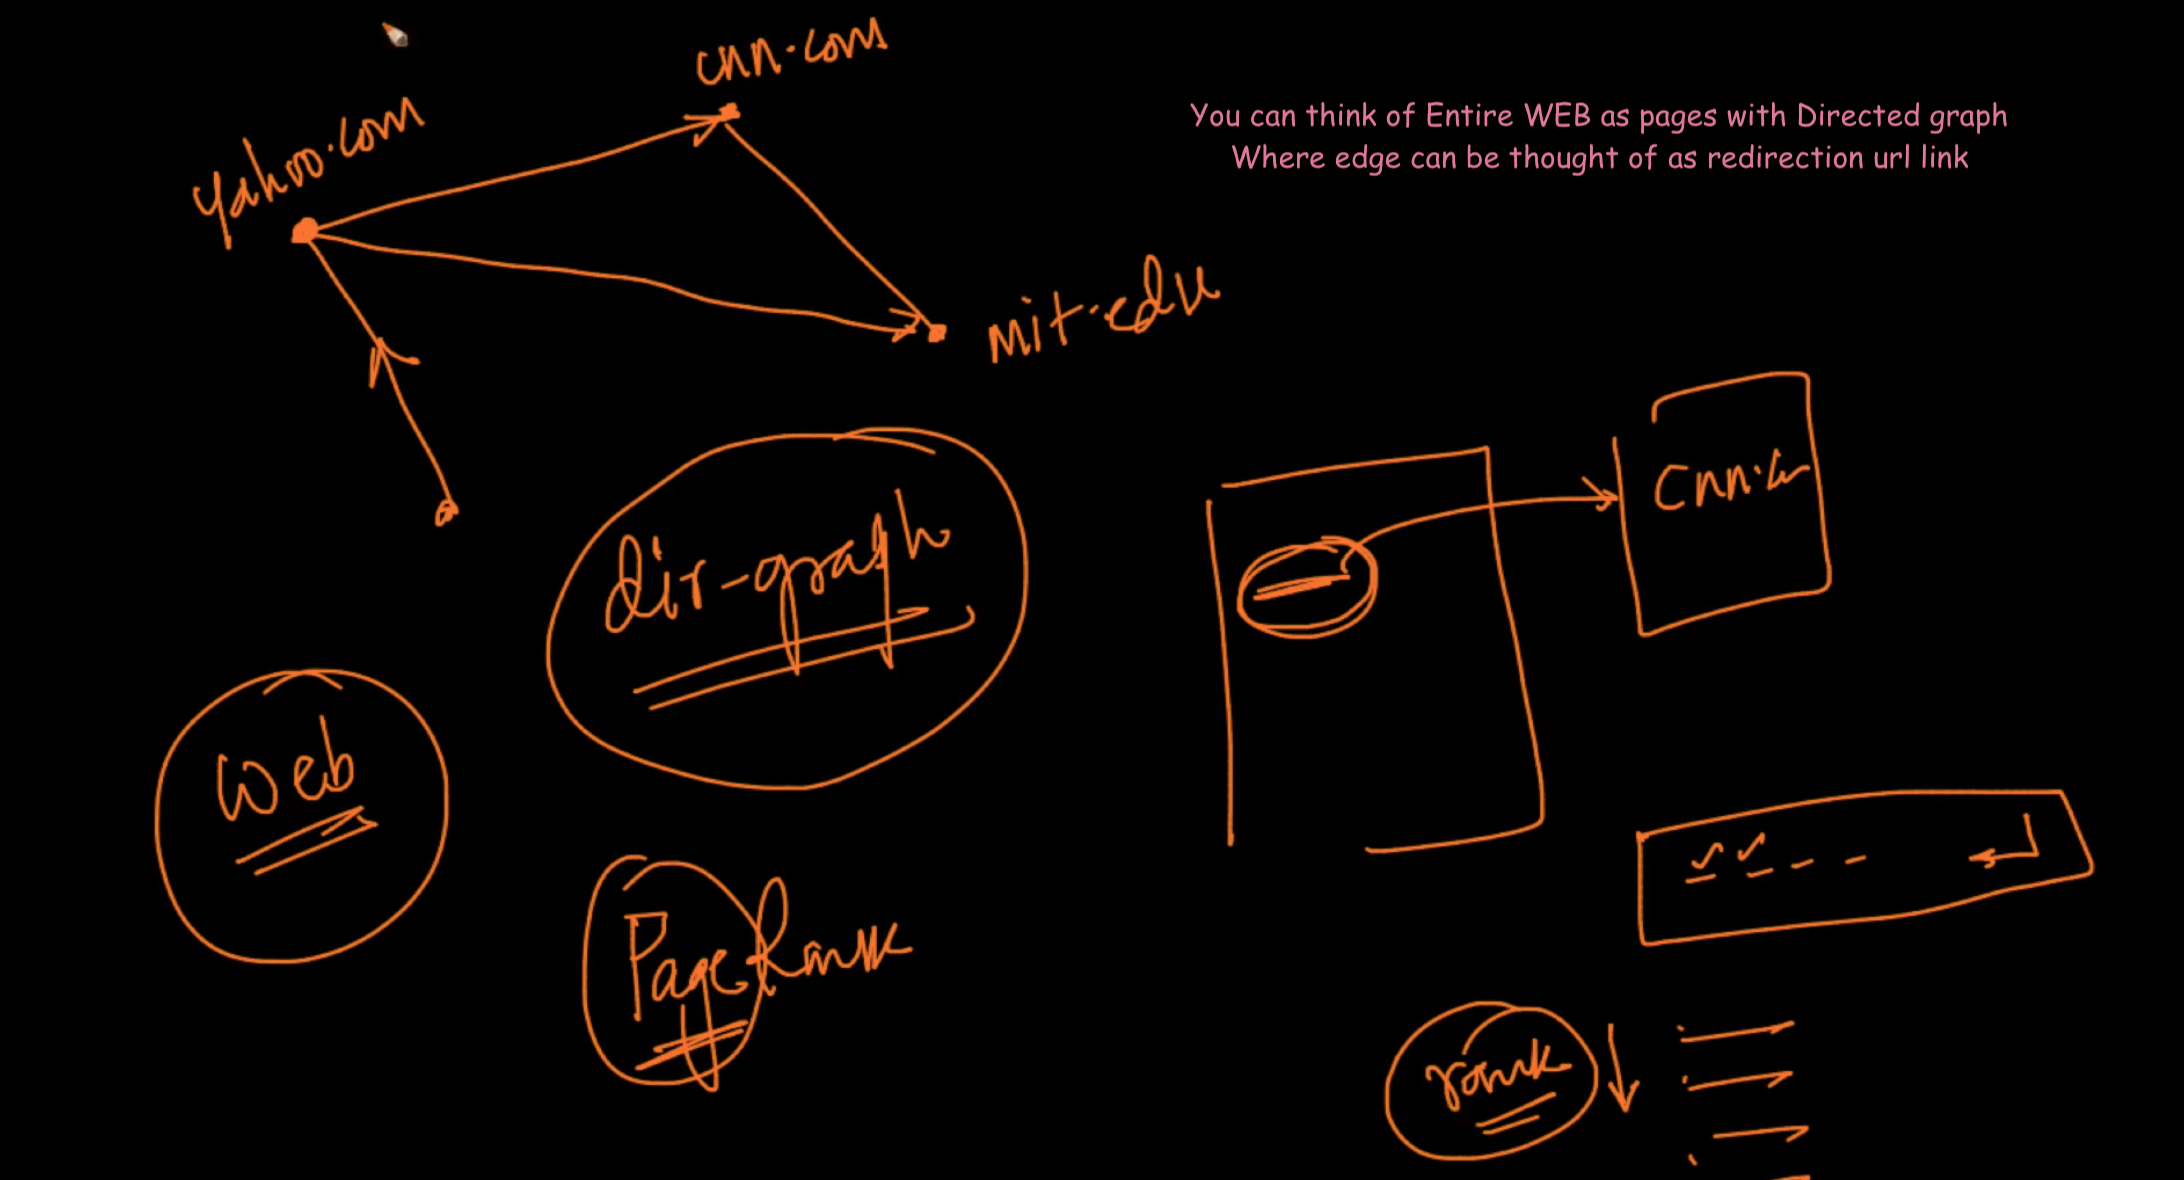 cnn.com
yahoo.com
You can think of Entire WEB as pages with Directed graph
Where edge can be thought of as redirection url link
mit.edu
dir-graph
Web
PageRank
rank